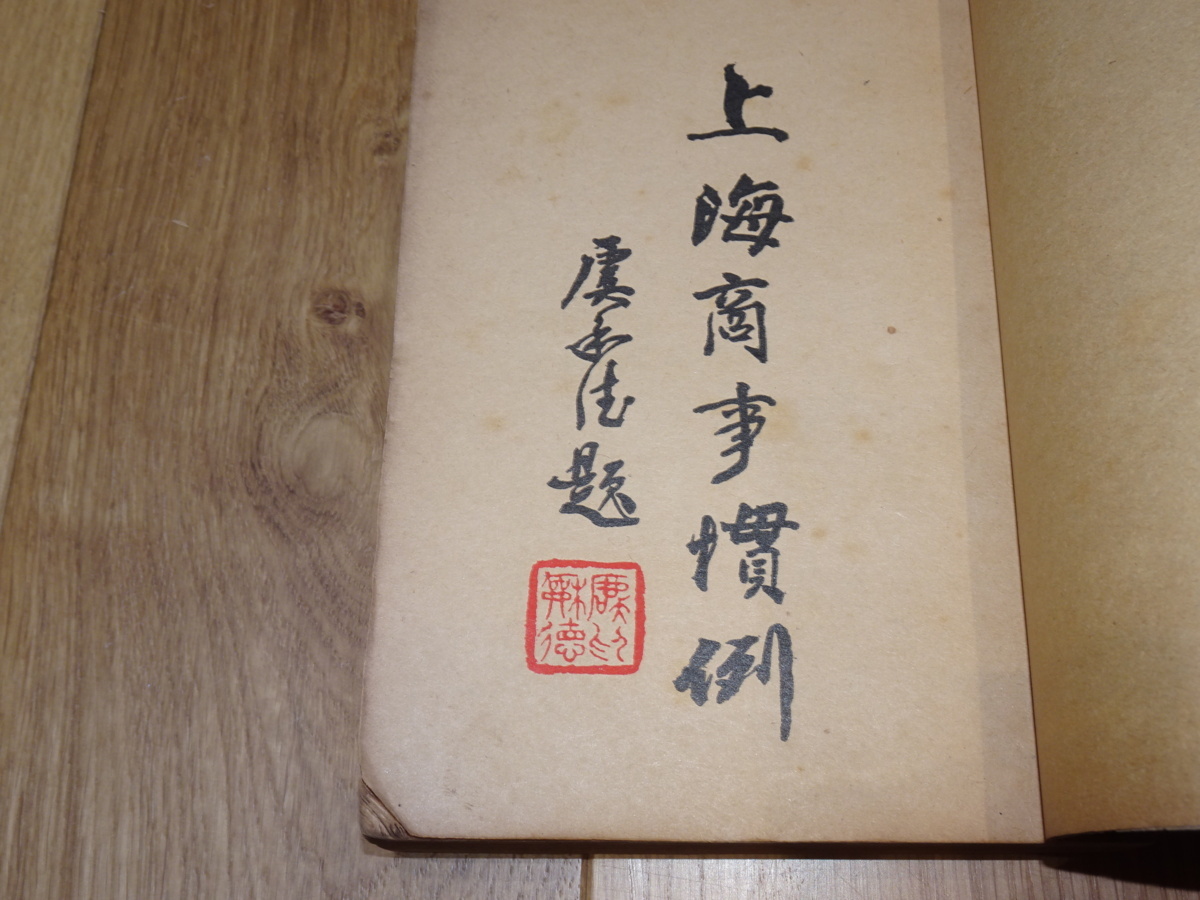 上海商事慣例
虞和德題
虞印
和德